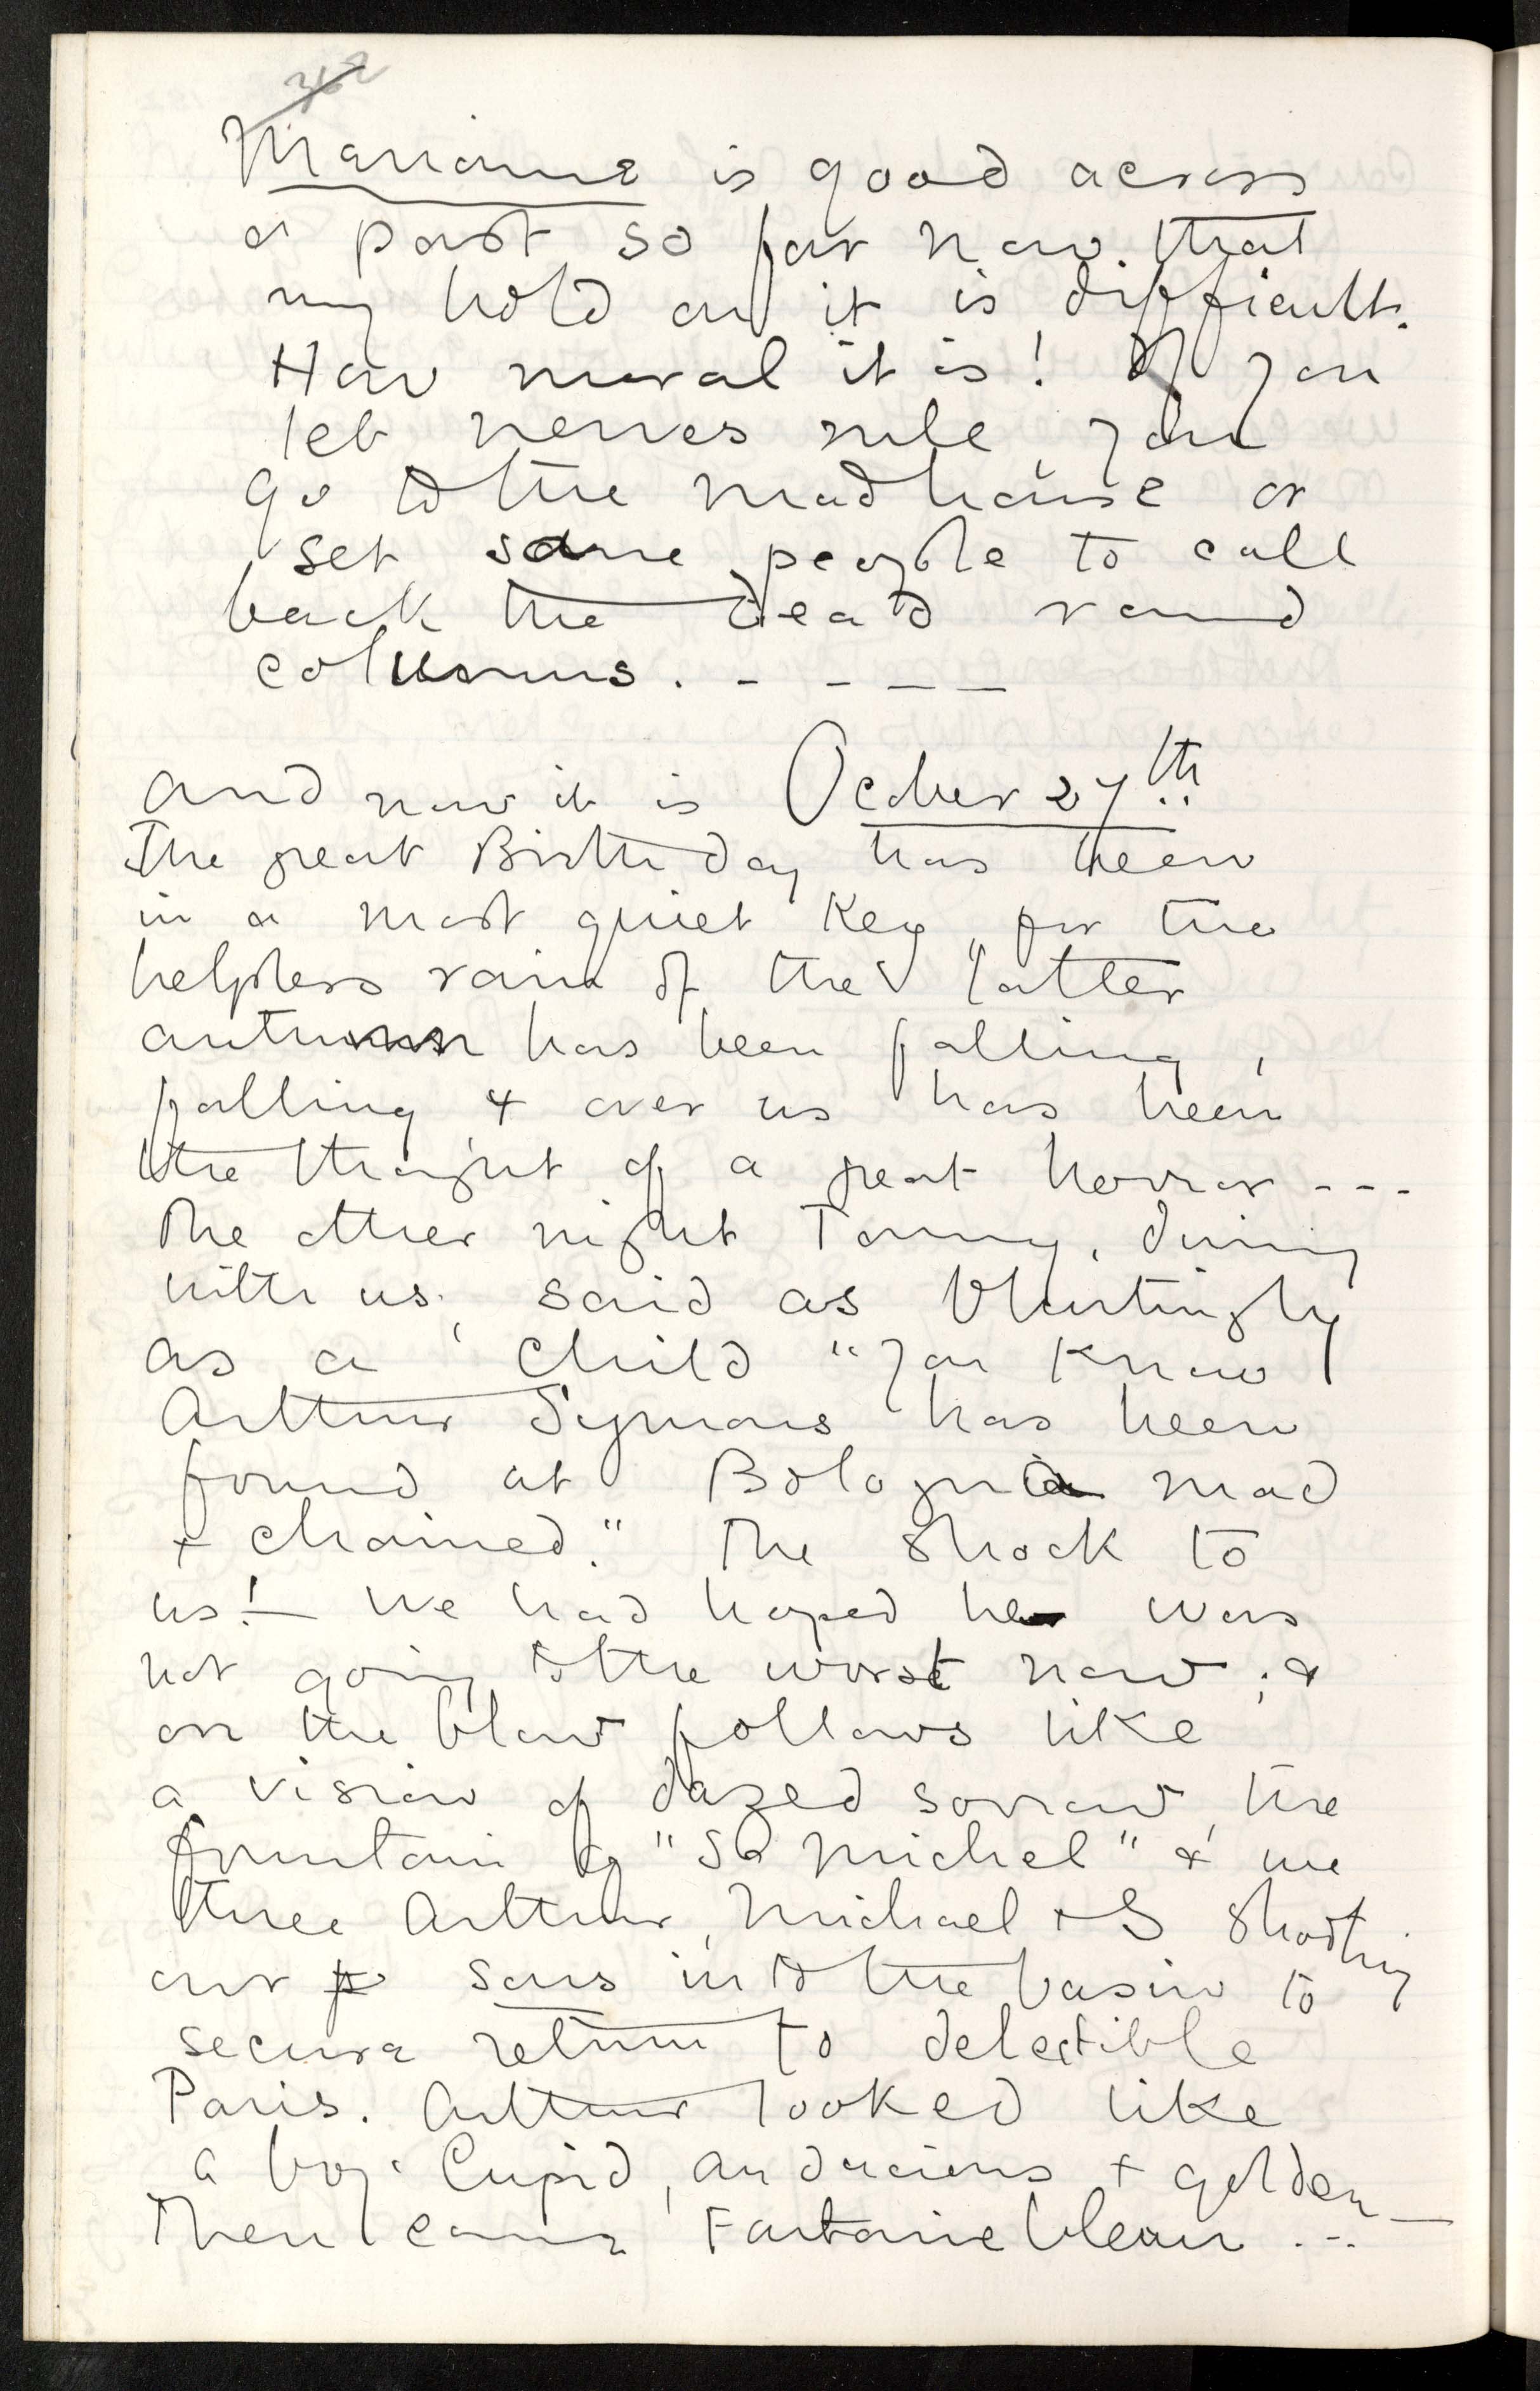 Marianne is good across
a past so far now that
my hold on it is difficult.
How moral it is! If you
let nerves rule, you
go to the madhouse or
set sane people to call
back the dead round
columns. - - - -
and now it is Ocober 27th
The great Birthday has been
in a most quiet key, for the
helpless rain of the latter
autumn has been falling,
falling & over us has been
the thought of a great horror - - -
The other night Tommy, dining
with us, said as blurtingly
as a child "You know
Arthur Symons has been
found at Bologna mad
& chained." The shock to
us! — We had hoped he was
not going to the worst now; &
on the blow follows like
a vision of dazed sorrow, the
fountain of "St Michel" & we
three Arthur, Michael & I
our sous into the basin to
secure return to delectible
Paris. Arthur looked like
a boy-Cupid, audacious & golden —
Then came Fontainebleau . - .